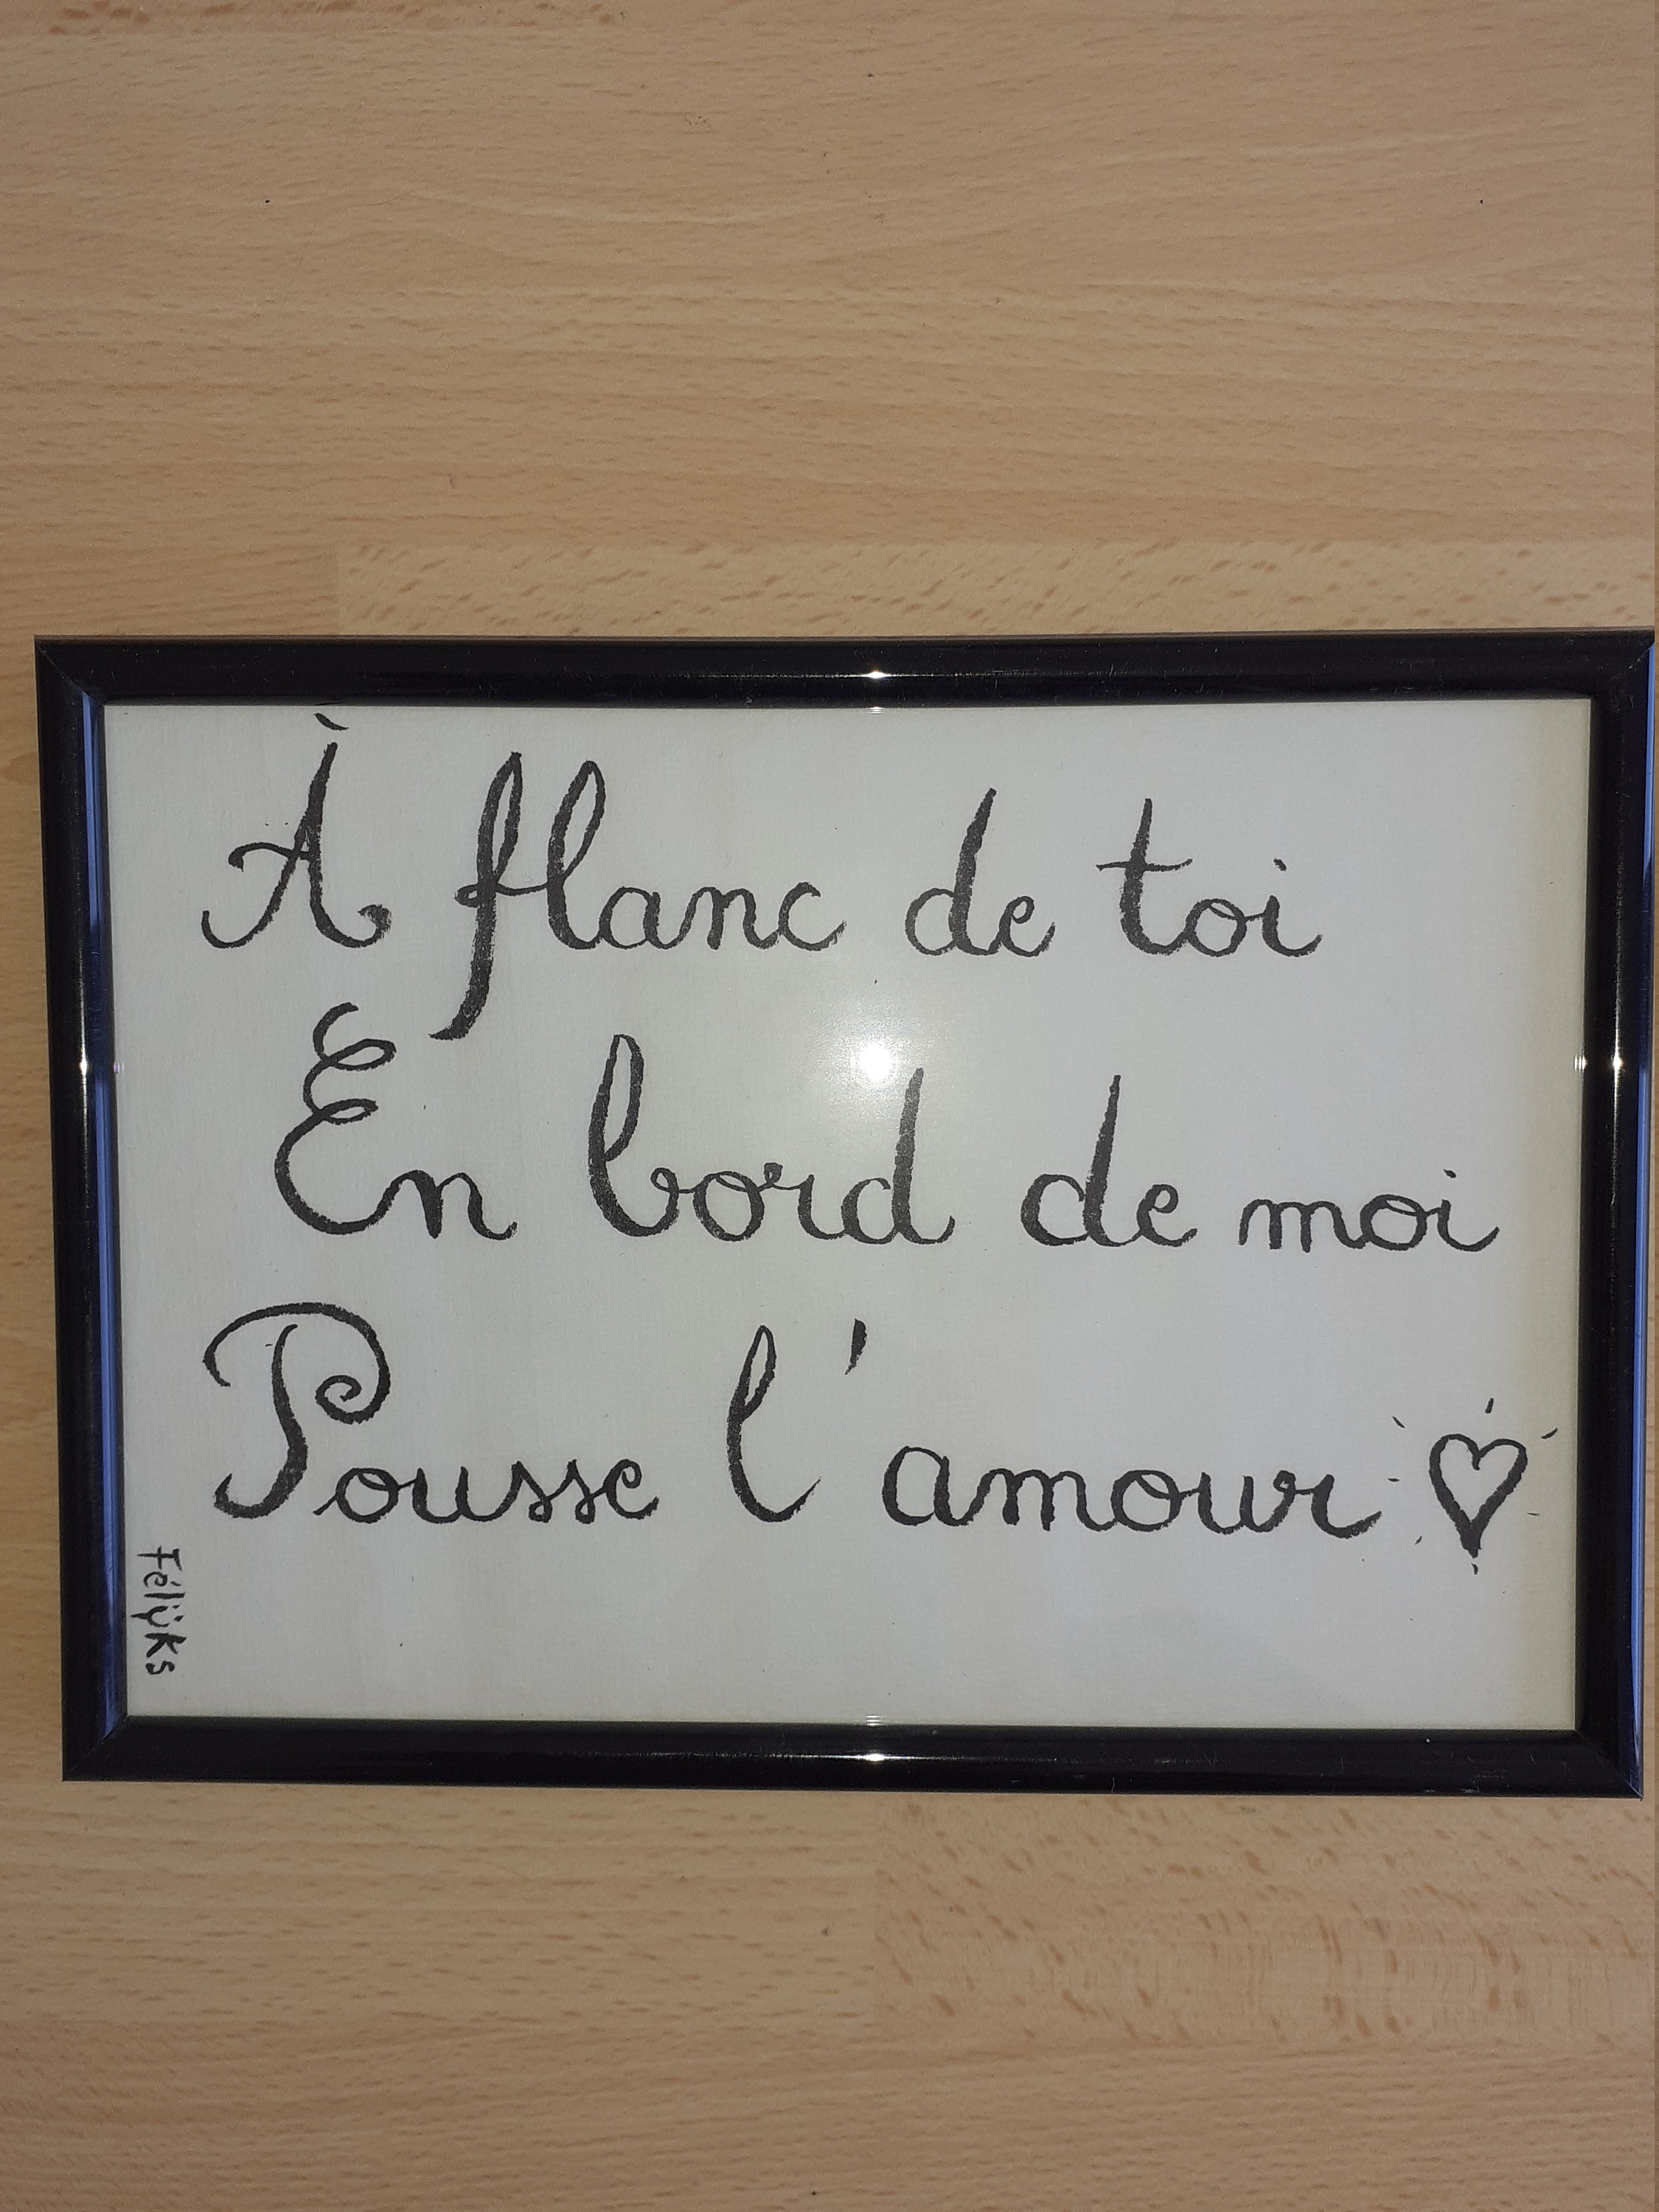 À flanc de toi
En bord de moi
Pousse l'amour ♡
Félÿks